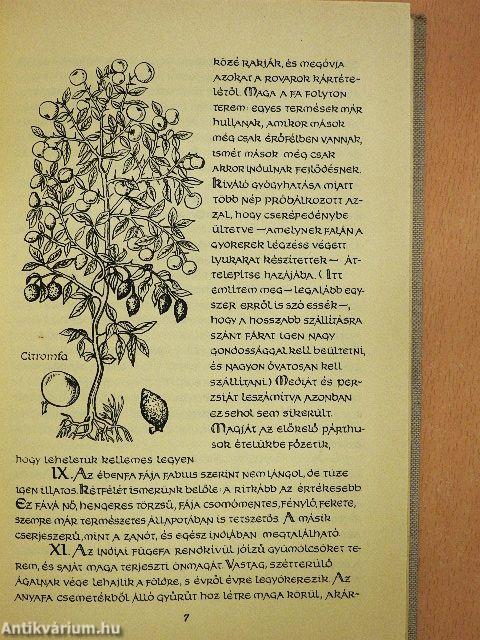 közé rakják, és megóvja
azokat a rovarok kártéte-
létől. Maga a fa folyton
terem: egyes termések már
hullanak, amikor mások
még csak érőfélben vannak,
ismét mások még csak
akkor indulnak fejlődésnek.
Kiváló gyógyhatása miatt
több nép próbálkozott az-
zal, hogy cserépedénybe
ültetve —amelynek falán a
gyökerek légzése végett
lyukakat készítettek— át-
telepítse hazájába. (Itt
említem meg—legalább egy-
szer erről is szó essék—,
hogy a hosszabb szállításra
szánt fákat igen nagy
gondossággal kell beültetni,
és nagyon óvatosan kell
szállítani.) Médiát és per-
zsiát leszámítva azonban
ezsehol sem sikerült.
Magját az előkelő párthu-
sok ételükbe főzetik,
Citromfa
hogy leheletük kellemes legyen.
IX. Az ébenfa fája Fabius szerint nem lángol, de tüze
igen illatos. Kétfélét ismerünk belőle: a ritkább az értékesebb.
Ez fává nő, hengeres törzsű, fája csomómentes, fénylő, fekete,
szemre már természetes állapotában is tetszetős. A másik
cserjeszerű, mint a zanót, és egész Indiában megtalálható.
XI. Az indiai fügefa rendkívül jóízű gyümölcsöket te-
rem, és saját maga terjeszti önmagát. Vastag, szétterülő
ágainak vége lehajlik a földre, s évről évre legyökerezik. Az
anyafa csemetékből álló gyűrűt hoz létre maga körül, akár-
7
Antikvárium.hu